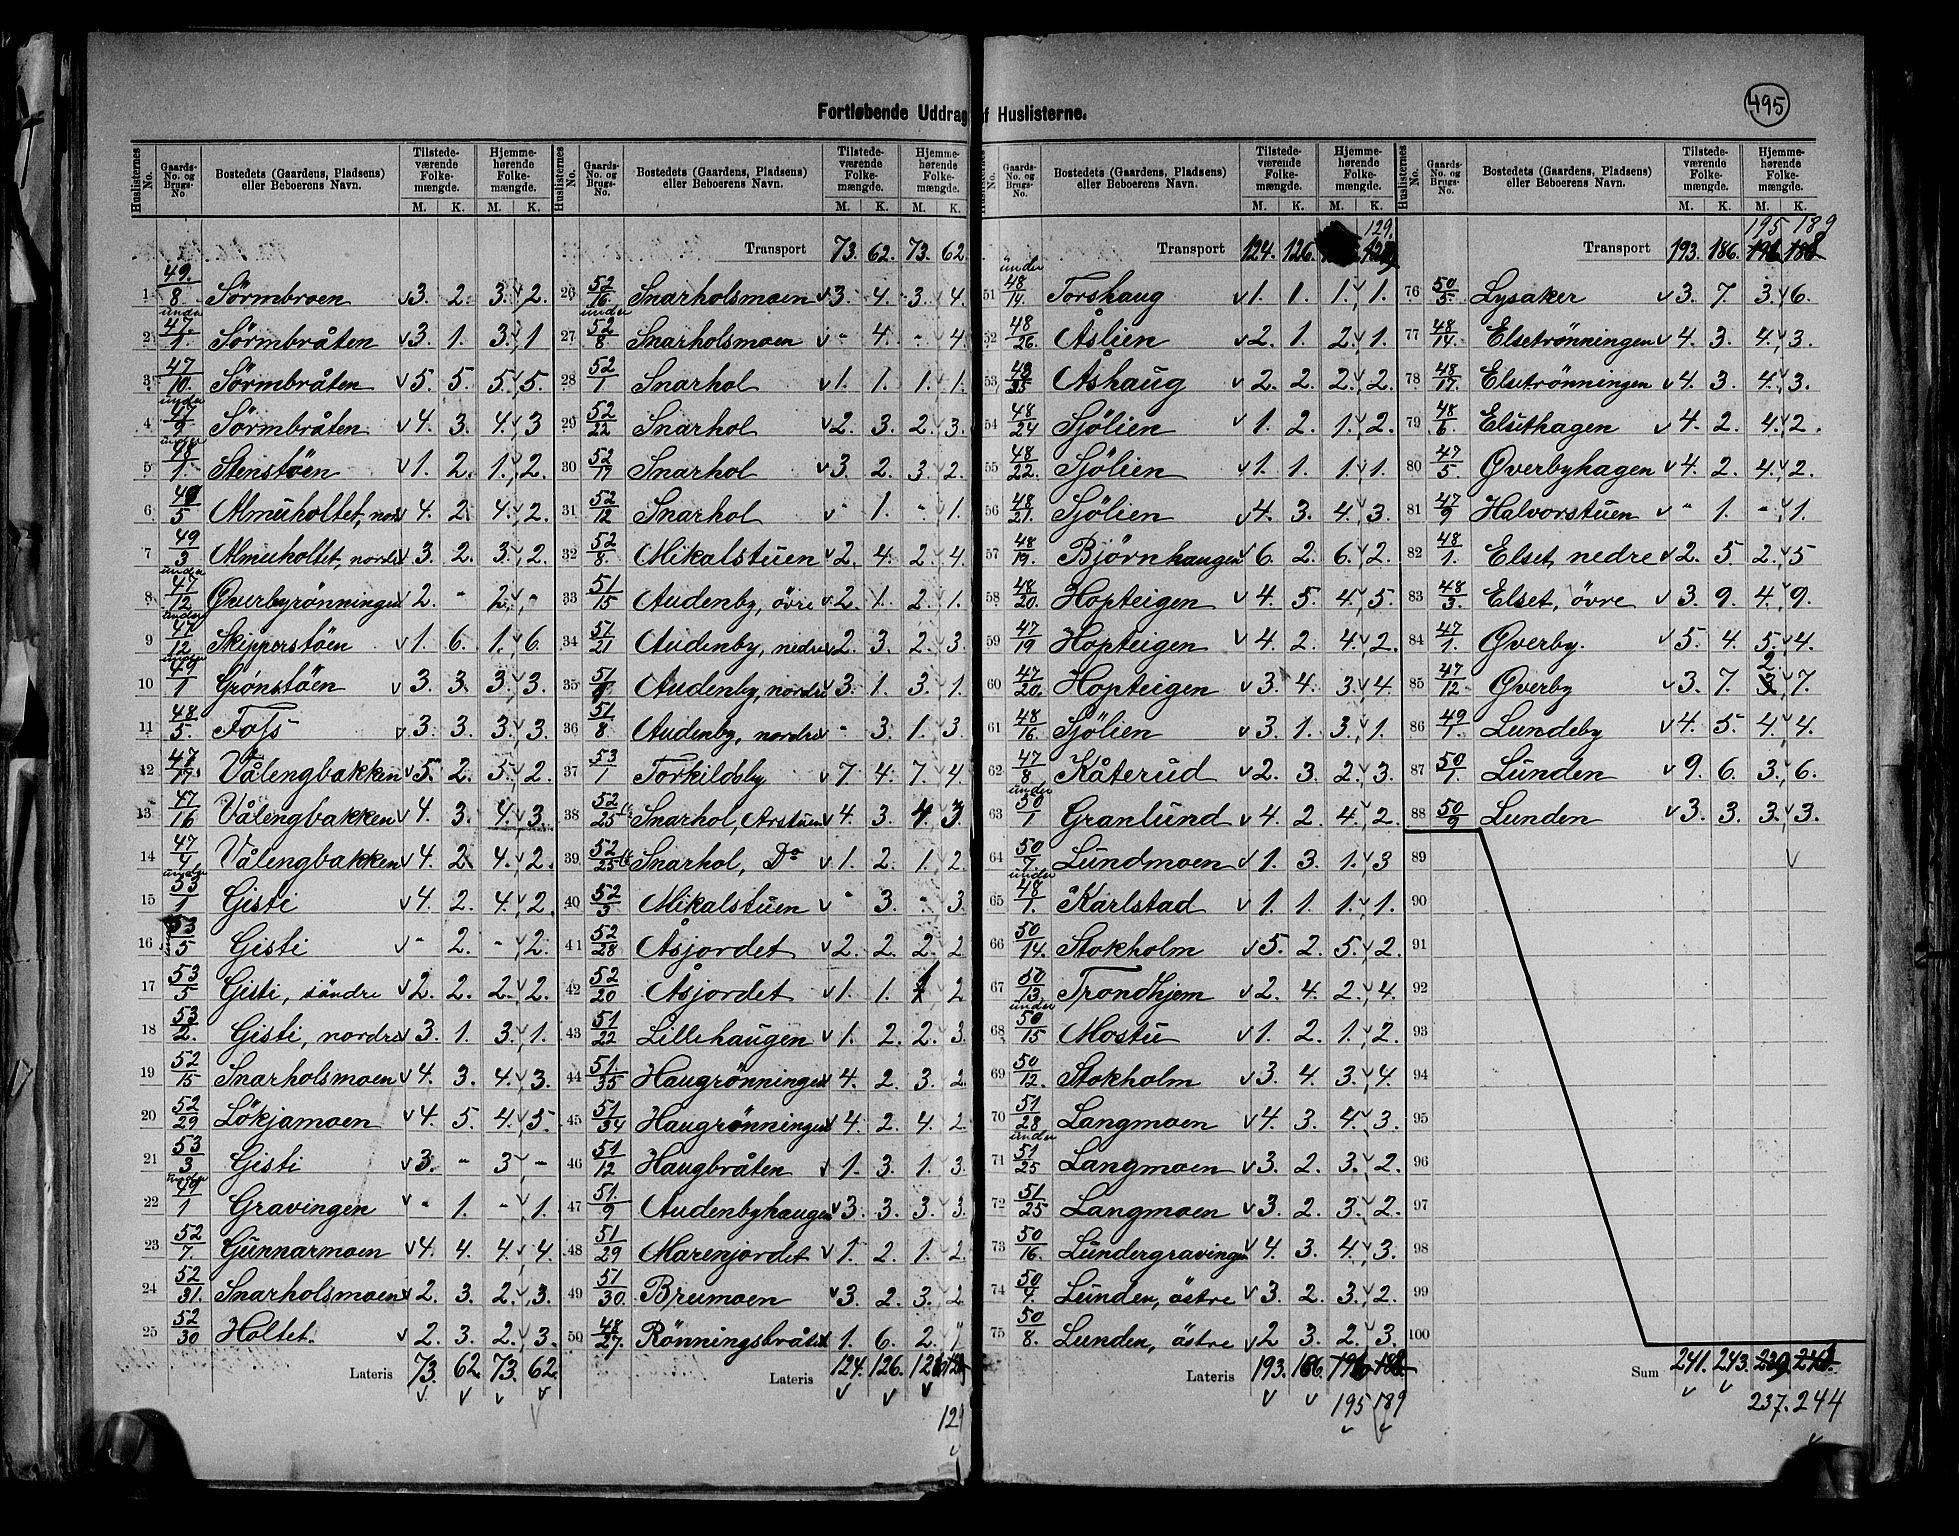 495
Fortløbende Uddrag af Huslisterne.
Huslisternes No. | Gaards-No. og Brugs-No. | Bostedets (Gaardens, Pladsens) eller Beboerens Navn. | Tilstedeværende Folkemængde. M. K. | Hjemmehørende Folkemængde. M. K.
1 49/8 Sörmbroen 3. 2. 3. 2.
2 under 47/1 Sörmbråten 3. 1. 3. 1
3 47/10 Sörmbråten 5. 5. 5. 5.
4 under 47/9 Sörmbråten 4. 3. 4. 3
5 under 48/1 Stenstöen 1. 2. 1. 2.
6 49/5 Almuholtet, 4. 2. 4. 2.
7 49/3 Almuholtet, nordre 3. 2. 3. 2.
8 under 47/12 Øverbyrönningen 2. " 2. "
9 under 47/12 Skipperstöen 1. 6. 1. 6.
10 under 49/1 Grönstöen 3. 3. 3. 3.
11 48/5 Foss 3. 3. 3. 3.
12 47/17 Vålengbakken 5. 2. 5. 2.
13 47/16 Vålengbakken 4. 3. 4. 3.
14 47/4 Vålengbakken 4. 2. 4. 2.
15 under 53/1 Gisti 4. 2. 4. 2.
16 53/5 Gisti " 2. " 2.
17 53/5 Gisti, söndre 2. 2. 2. 2.
18 53/2 Gisti, nordre 3. 1. 3. 1.
19 52/15 Snarholsmoen 4. 3. 4. 3.
20 52/29 Lökjamoen 4. 5. 4. 5.
21 53/3 Gisti 3. " 3 "
22 under 49/1 Gravingen " 1. " 1.
23 52/7 Gunnarmoen 4. 4. 4. 4.
24 52/31 Snarholsmoen 2. 3. 2. 3.
25 52/30 Holtet. 2. 3. 2. 3.
Lateris 73. 62. 73. 62.
Huslisternes No. | Gaards-No. og Brugs-No. | Bostedets (Gaardens, Pladsens) eller Beboerens Navn. | Tilstedeværende Folkemængde. M. K. | Hjemmehørende Folkemængde. M. K.
Transport 73. 62. 73. 62.
26 52/16 Snarholsmoen 3. 4. 3. 4.
27 under 52/8 Snarholsmoen " 4. " 4.
28 52/1 Snarhol 1. 1. 1. 1.
29 52/22 Snarhol 2. 3. 2. 3.
30 52/17 Snarhol 3. 2. 3. 2.
31 52/12 Snarhol " 1. " 1.
32 52/8 Mikalstuen 2. 4. 2. 4.
33 51/15 Audenby, övre 2. 1. 2. 1.
34 51/21 Audenby, nedre 2. 3. 2. 3.
35 51/ Audenby, nordre 3. 1. 3. 1.
36 51/8 Audenby, nordre " 3. 1. 3
37 53/1 Torkildsby 7. 4. 7. 4.
38 52/25 Snarhol, Arstuen 4. 3. 4. 3.
39 52/25 Snarhol, Do 1. 2. 1. 2.
40 52/3 Mikalstuen " 3. " 3.
41 52/28 Åsjordet 2. 2. 2. 2
42 52/20 Åsjordet 1. 1. 1 2
43 51/22 Lillehaugen 1. 2. 2. 3.
44 51/35 Haugrönningen 4. 2. 3. 2
45 51/34 Haugrönningen 4. 2. 4. 2
46 51/12 Haugbråten 1. 3. 1. 3.
47 51/9 Audenbyhaugen 3. 3. 3. 3.
48 51/29 Marenjordet 1. 2. 1. 2
49 51/30 Bremoen 3. 2. 3. 2
50 48/27 Rönningsbråten 1. 6. 2.
Lateris 124. 126.
129
Huslisternes No. | Gaards-No. og Brugs-No. | Bostedets (Gaardens, Pladsens) eller Beboerens Navn. | Tilstedeværende Folkemængde. M. K. | Hjemmehørende Folkemængde. M. K.
129.
Transport 124. 126.
51 under 48/14 Torshaug 1. 1. 1. 1.
52 48/26 Åslien 2. 1. 2. 1.
53 48/25 Åshaug 2. 2. 2. 2.
54 48/24 Sjölien 1. 2. 1. 2.
55 48/22 Sjölien 1. 1. 1. 1.
56 48/21 Sjölien 4. 3. 4. 3.
57 48/19 Björnhaugen 6. 2. 6. 2.
58 48/20 Hopteigen 4. 5. 4. 5.
59 47/19 Hopteigen 4. 2. 4. 2.
60 47/20 Hopteigen 3. 4. 3. 4.
61 48/16 Sjölien 3. 1. 3. 1.
62 47/8 Kåterud 2. 3. 2. 3.
63 under 50/1 Granlund 4. 2. 4. 2.
64 50/7 Lundmoen 1. 3. 1. 3
65 under 48/1 Karlstad 1. 1. 1. 1.
66 50/14 Stokholm 5. 2. 5. 2.
67 50/13 Trondhjem 2. 4. 2. 4.
68 under 50/15 Mostu 1. 2. 1. 2.
69 50/12 Stokholm 3. 4. 3. 4.
70 51/28 Langmoen 4. 3. 4. 3.
71 under 51/25 Langmoen 3. 2. 3. 2.
72 51/25 Langmoen 3. 2. 3. 2.
73 50/16 Lundergravingen 4. 3. 4. 3.
74 50/4 Lunden, östre 3. 2. 3. 2.
75 50/8 Lunden, östre 2 3. 2. 3.
Lateris 193. 186. 196. 188.
195 189
Huslisternes No. | Gaards-No. og Brugs-No. | Bostedets (Gaardens, Pladsens) eller Beboerens Navn. | Tilstedeværende Folkemængde. M. K. | Hjemmehørende Folkemængde. M. K.
195 189
Transport 193. 186. 196 188
76 50/5 Lysaker 3. 7. 3. 6.
77 48/14 Elsetrönningen 4. 3. 4. 3.
78 48/17 Elsetrönningen 4. 3. 4. 3.
79 48/6 Elsethagen 4. 2. 4. 2.
80 47/5 Øverbyhagen 4. 2. 4. 2.
81 47/9 Halvorstuen " 1. " 1.
82 48/1 Elset, nedre 2. 5. 2. 5
83 48/3 Elset, övre 3. 9. 4. 9.
84 47/1 Øverby. 5. 4. 5. 4.
85 47/12 Øverby 3. 7. 2. 7.
86 49/1 Lundeby 4. 5. 4. 4.
87 50/1 Lunden 9. 6. 3. 6.
88 50/9 Lunden 3. 3. 3. 3.
89
90
91
92
93
94
95
96
97
98
99
100
Sum 241. 243. 239. 243.
237. 244